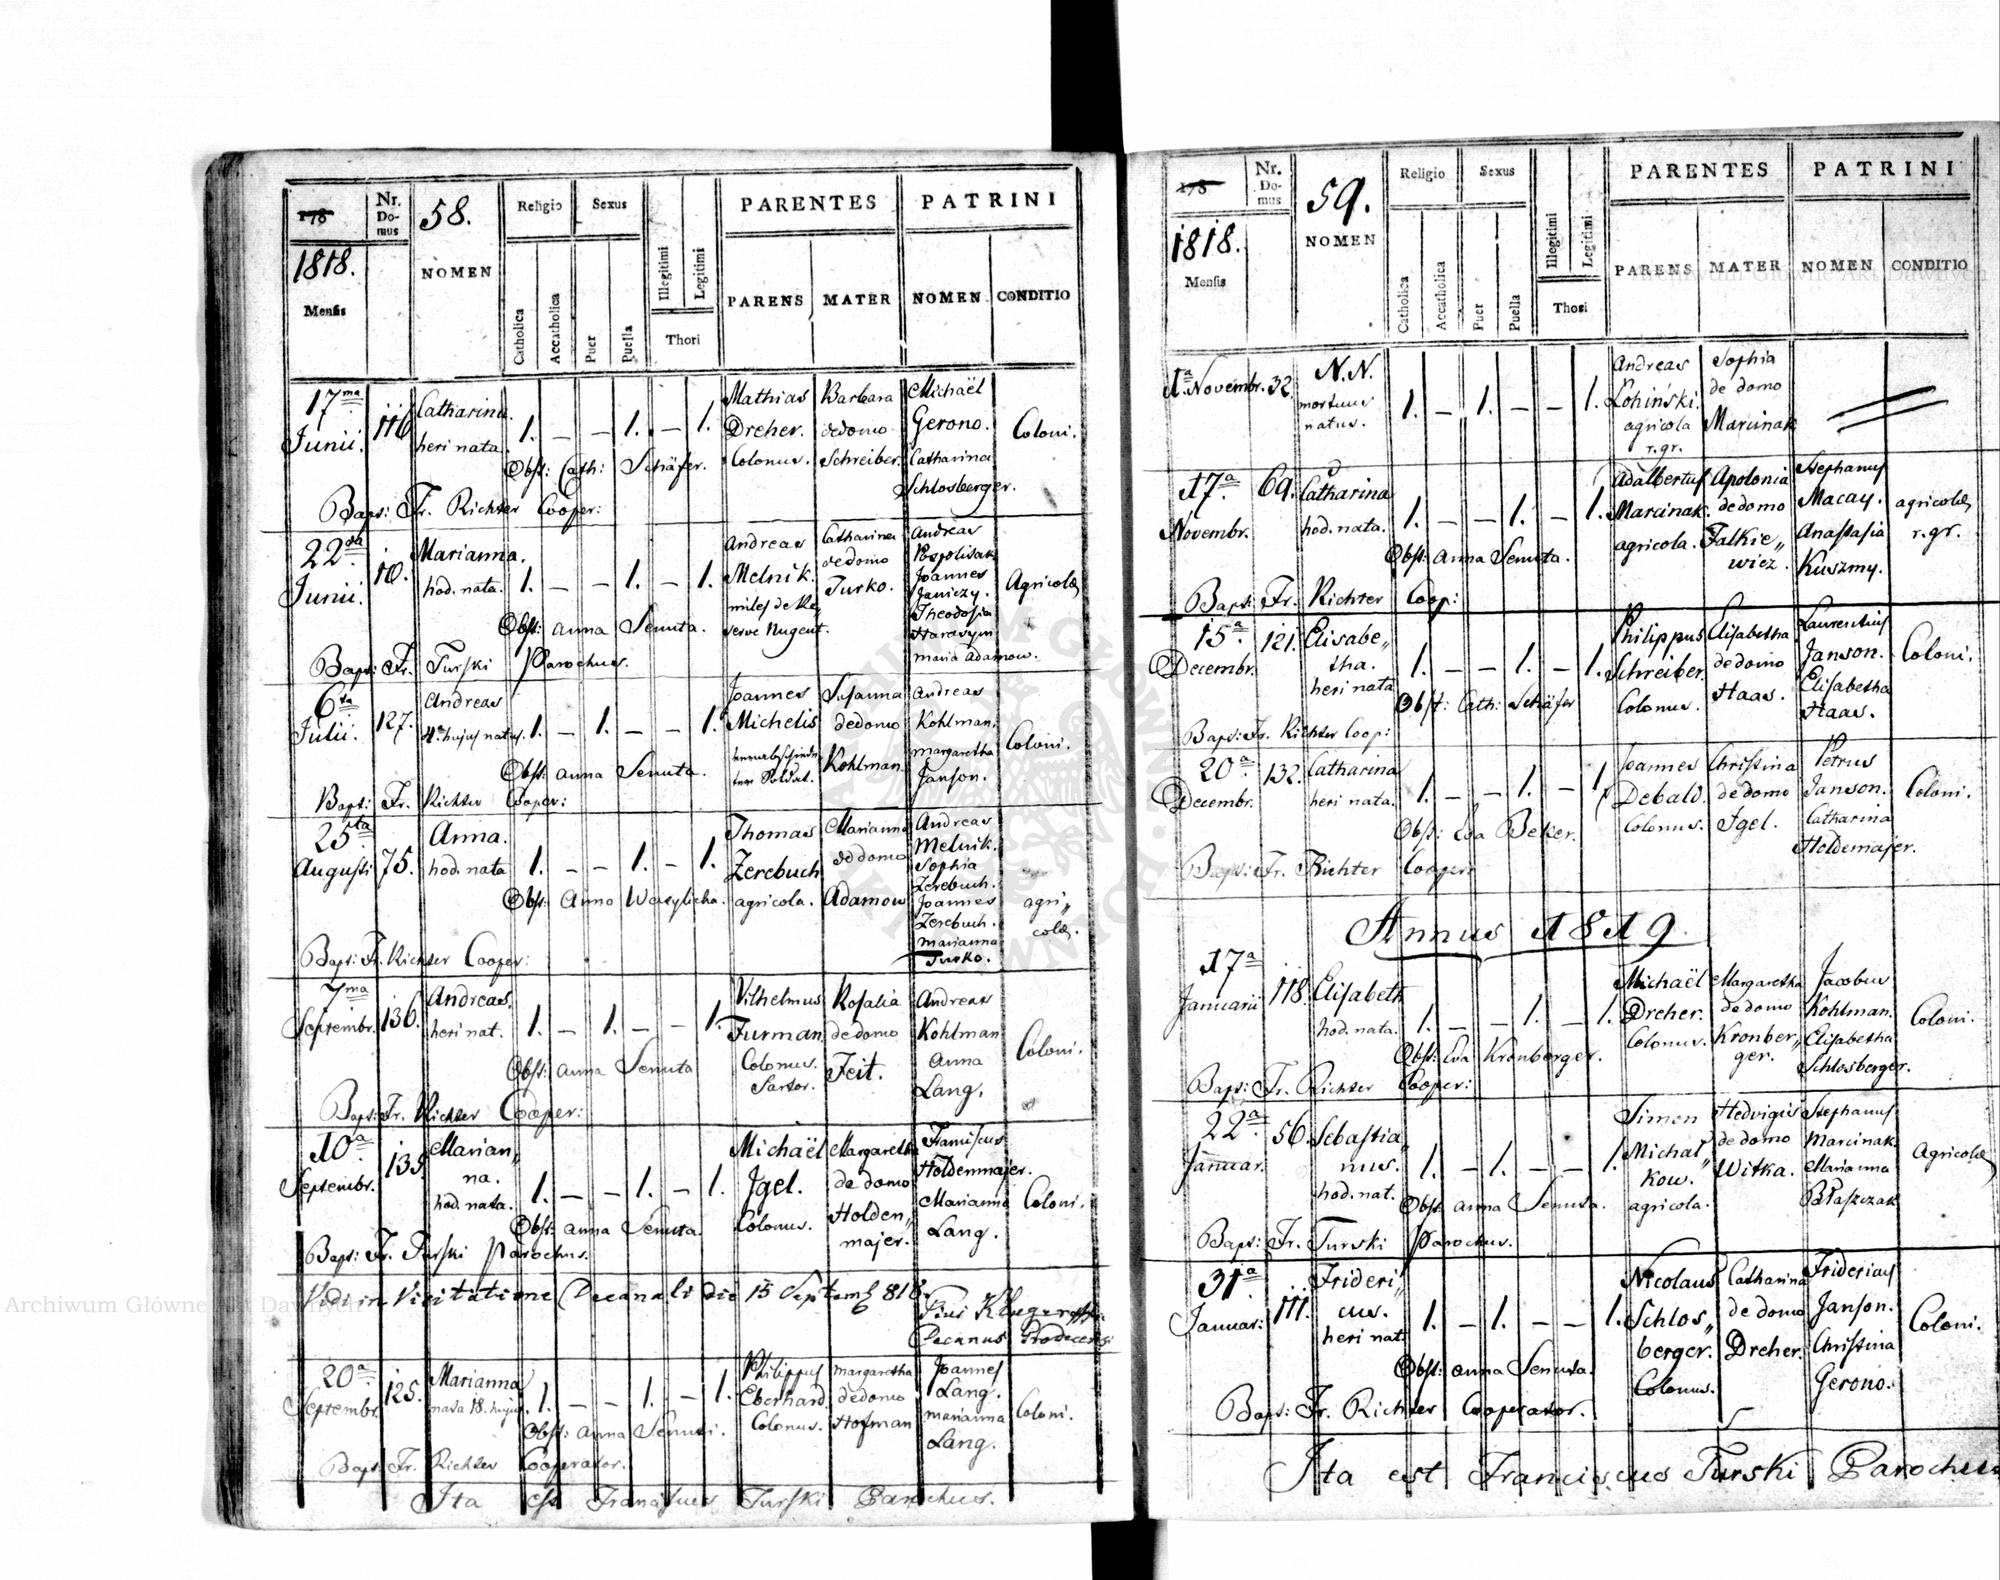 178
Nr. Domus
58.
Religio
Sexus
PARENTES
PATRINI
1818.
Mensis
NOMEN
Catholica
Accatholica
Puer
Puella
Illegitimi
Legitimi
Thori
PARENS
MATER
NOMEN
CONDITIO
17ma Junii.
116
Catharina heri nata.
1. – – 1. – 1.
Mathias Dreher. Colonus.
Barbara de domo Schreiber.
Michaël Gerono. Catharina Schlosberger.
Coloni.
Obst: Cath: Schäfer.
Bapt: Fr. Richter Cooper:
22da Junii.
10.
Marianna. hod. nata.
1. – – 1. – 1.
Andreas Melnik. miles de Reserve Nugent.
Catharina de domo Turko.
Andreas Pospolitak Joannes Janiczy. Theodosia Harasym maria Adamow.
Agricolæ
Obst: anna Senuta.
Bapt: Fr. Turski Parochus.
6ta Julii.
127.
Andreas 4ta hujus natus.
1. – 1. – – 1.
Joannes Michelis
Susanna de domo Kohlman.
Andreas Kohlman. margaretha Janson.
Coloni.
Obst: anna Senuta.
Bapt: Fr. Richter Cooper:
25ta Augusti
75.
Anna. hod. nata
1. – – 1. – 1.
Thomas Zerebuch agricola.
Marianna de domo Adamow
Andreas Melnik. Sophia Zerebuch. Joannes Zerebuch. marianna Turko.
agricolæ.
Obst: Anna Wasylicha.
Bapt: Fr. Richter Cooper:
7ma Septembr.
136.
Andreas, heri nat.
1. – 1. – – 1.
Vilhelmus Furman Colonus. Sartor.
Rosalia de domo Feit.
Andreas Kohlman Anna Lang.
Coloni.
Obst: anna Senuta
Bapt: Fr. Richter Cooper:
10a Septembr.
135.
Marian„na. hod. nata.
1. – – 1. – 1.
Michaël Jgel. Colonus.
Margaretha de domo Holden„majer.
Franciscus Holdenmajer. Marianna Lang.
Coloni.
Obst: anna Senuta.
Bapt: Fr. Turski Parochus.
Vidi in Visitatione Decanali die 15 Septemb 818.
Decanus
20a Septembr.
125.
Marianna nata 18. hujus.
1. – – 1. – 1.
Philippus Eberhard Colonus.
margaretha de domo Hofman
Joannes Lang. marianna Lang.
Coloni.
Obst: anna Senuti.
Bapt: Fr. Richter Cooperator.
Ita est Franciscus Turski Parochus.
178
Nr. Domus
59.
Religio
Sexus
PARENTES
PATRINI
1818.
Mensis
NOMEN
Catholica
Accatholica
Puer
Puella
Illegitimi
Legitimi
Thori
PARENS
MATER
NOMEN
CONDITIO
1a Novembr.
32.
N.N. mortuus natus.
1. – 1. – – 1.
Andreas Łohiński. agricola r.gr.
Sophia de domo Marcinak
17a Novembr.
69.
Catharina hod. nata.
1. – – 1. – 1.
Adalbertus Marcinak. agricola.
Apolonia de domo Falkie„wicz.
Stephanus Macay. Anastasia Kuszmy.
agricolæ r.gr.
Obst: anna Senuta.
Bapt: Fr. Richter Coop:
15a Decembr.
121.
Elisabe„tha. heri nata
1. – – 1. – 1.
Philippus Schreiber. Colonus.
Elisabetha de domo Haas.
Laurentius Janson. Elisabetha Haas.
Coloni.
Obst: Cath: Schäfer
Bapt: Fr. Richter Coop:
20a Decembr.
132.
Catharina heri nata.
1. – – 1. – 1.
Joannes Debald. Colonus.
Christina de domo Jgel.
Petrus Janson. Catharina Holdemajer.
Coloni.
Obst: Eva Beker.
Bapt: Fr. Richter Cooper:
Annus 1819.
17a Januarii
118.
Elisabeth hod. nata.
1. – – 1. – 1.
Michaël Dreher. Colonus.
Margaretha de domo Kronber„ger.
Jacobus Kohlman. Elisabetha Schlosberger.
Coloni.
Obst: Eva Kronberger.
Bapt: Fr. Richter Cooper:
22a Januar.
56.
Sebastia„nus. hod. nat.
1. – 1. – – 1.
Simon Michal„kow. agricola.
Hedvigis de domo Witka.
Stephanus Marcinak. Marianna Błaszczak
Agricolæ
Obst: anna Senuta.
Bapt: Fr. Turski Parochus.
31a Januar:
111.
Frideri„cus. heri nat.
1. – 1. – – 1.
Nicolaus Schlos„berger. Colonus.
Catharina de domo Dreher.
Fridericus Janson. Christina Gerono.
Coloni.
Obst: anna Senuta.
Bapt: Fr. Richter Cooperator.
Ita est Franciscus Turski Parochus
Archiwum Główne Akt Dawnych